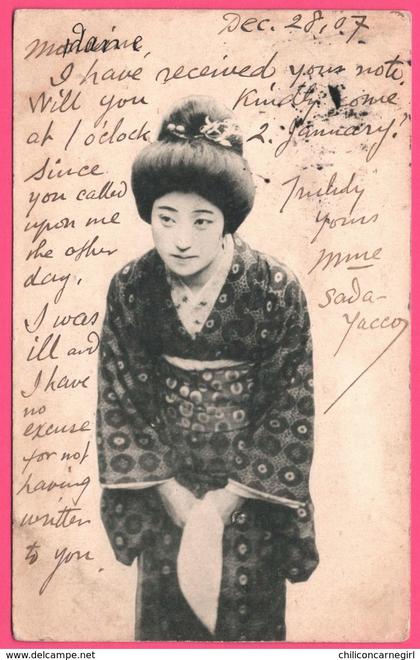 Dec. 28, 07
Madame,
I have received your note.
Will you Kindly come
at 1 o'clock 2. January?
Since
you called
upon me
the other
day,
I was
ill and
I have
no
excuse
for not
having
written
to you.
Truly
yours
Mme
Sada-
Yacco
www.delcampe.net
chiliconcarnegirl